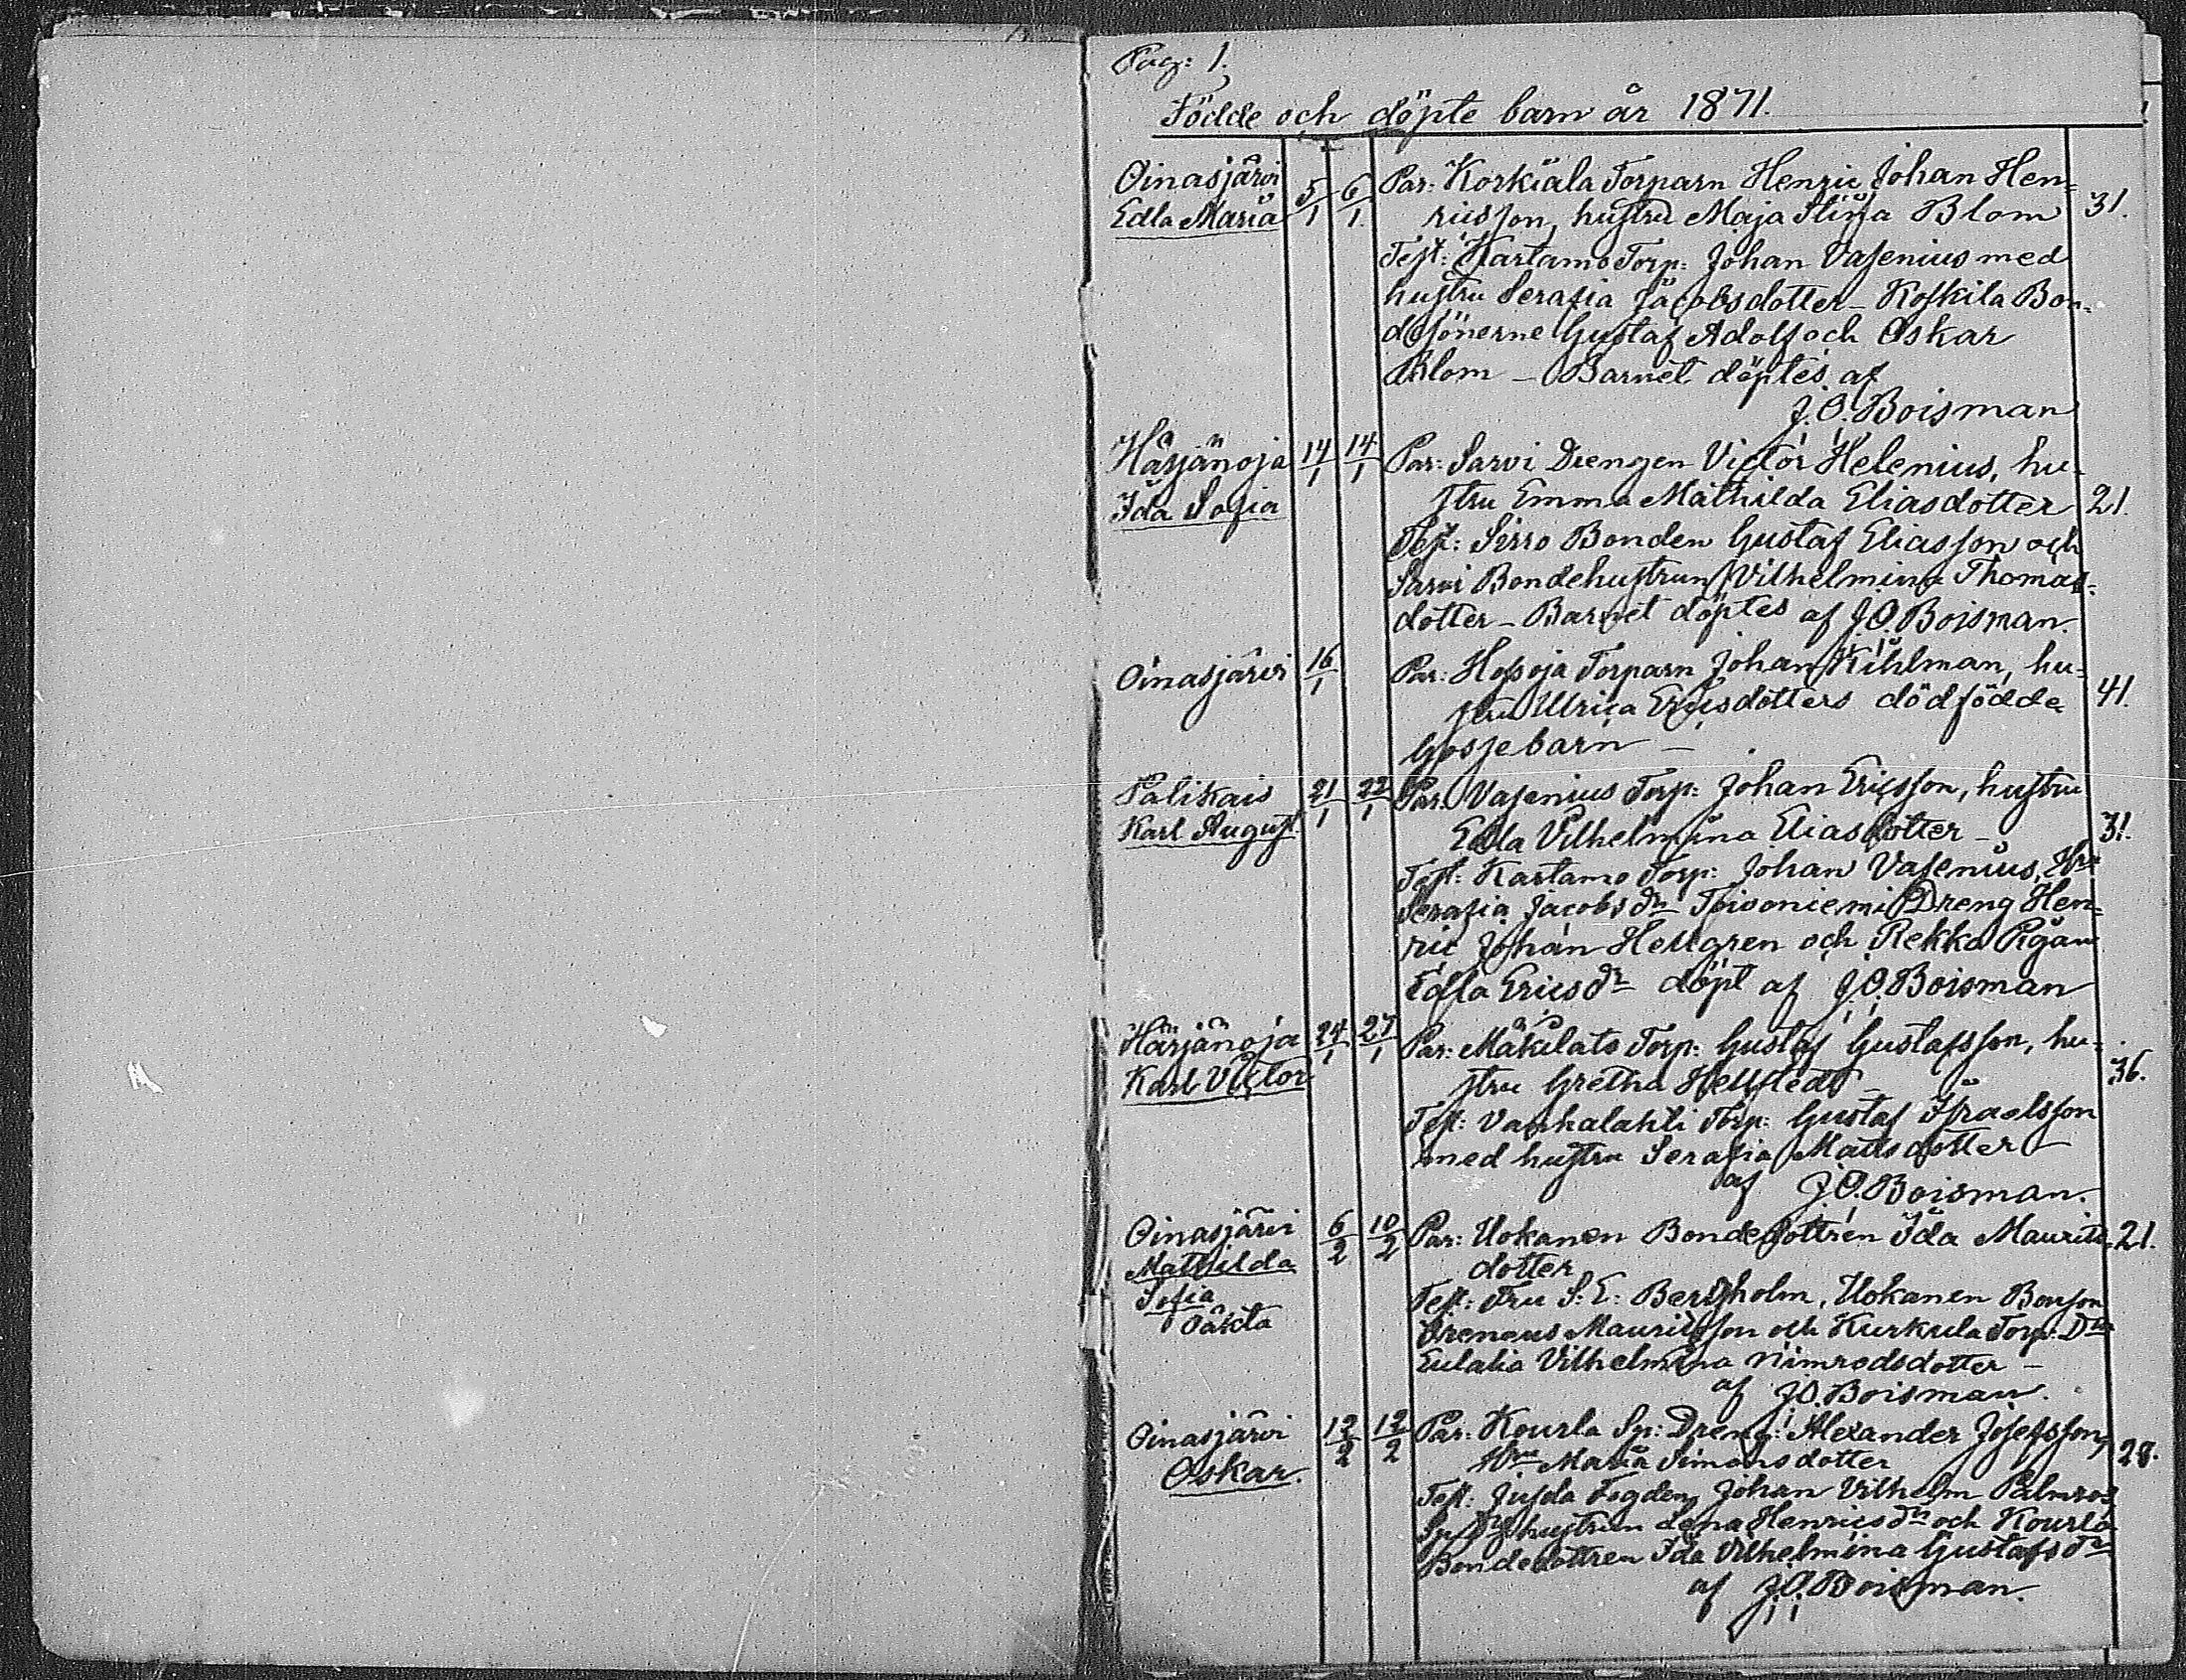 Pag: 1.
Födde och döpte barn år 1871.
Oinasjärvi 5/1 6/1 Par: Korkiala Torparn Henric Johan Hen=
Edla Maria ricsson, hustru Maja Stina Blom 31.
Test: Kartamo Torp: Johan Vasenius med
hustru Serafia Jacobsdotter – Koskila Bon=
desönerne Gustaf Adolf och Oskar
Blom – Barnet döptes af
J.O. Boisman
Härjänoja 14/1 14/1 Par: Sarvi Drengen Victor Helenius, hu=
Ida Sofia stru Emma Mathilda Eliasdotter 21.
Test: Sirro Bonden Gustaf Eliasson och
Sarvi Bondehustrun Vilhelmina Thomas=
dotter – Barnet döptes af J.O. Boisman.
Oinasjärvi 16/1 Par: Hossoja Torparn Johan Kihlman, hu=
stru Ulrica Ericsdotters dödfödde 41.
Gossebarn –
Palikais 21/1 22/1 Par: Vasenius Torp: Johan Ericsson, hustru
Karl August Edla Vilhelmina Eliasdotter – 31.
Test: Kartamo Torp: Johan Vasenius, Hru
Serafia Jacobsdr Toivoniemi Dreng Hen=
ric Johan Hellgren och Rekka Pigan
Edla Ericsdr döpt af J.O. Boisman
Härjänoja 24/1 27/1 Par: Mäkilato Torp: Gustaf Gustafsson, hu=
Karl Victor stru Gretha Hellstedt – 36.
Test: Vanhalahti Torp: Gustaf Israelsson
med hustru Serafia Matsdotter –
af J.O. Boisman.
Oinasjärvi 6/2 10/2 Par: Uokanen Bondedottren Ida Maurits= 21.
Mathilda dotter
Sofia Test: Fru S: E: Bergholm, Uokanen Bonson
Oäkta Ireneus Mauritsson och Kurkula Torp: Dtr
Eulalia Vilhelmina Nimrodsdotter –
af J.O. Boisman.
Oinasjärvi 12/2 12/2 Par: Kourla Sp: Dreng: Alexander Josefsson,
Oskar. Hru Maria Simonsdotter 28.
Test: Jusola Fogden Johan Vilhelm Palmros
hustrun Lena Henricsdr och Kourla
Bondedottren Ida Vilhelmina Gustafsdr
af J.O. Boisman.